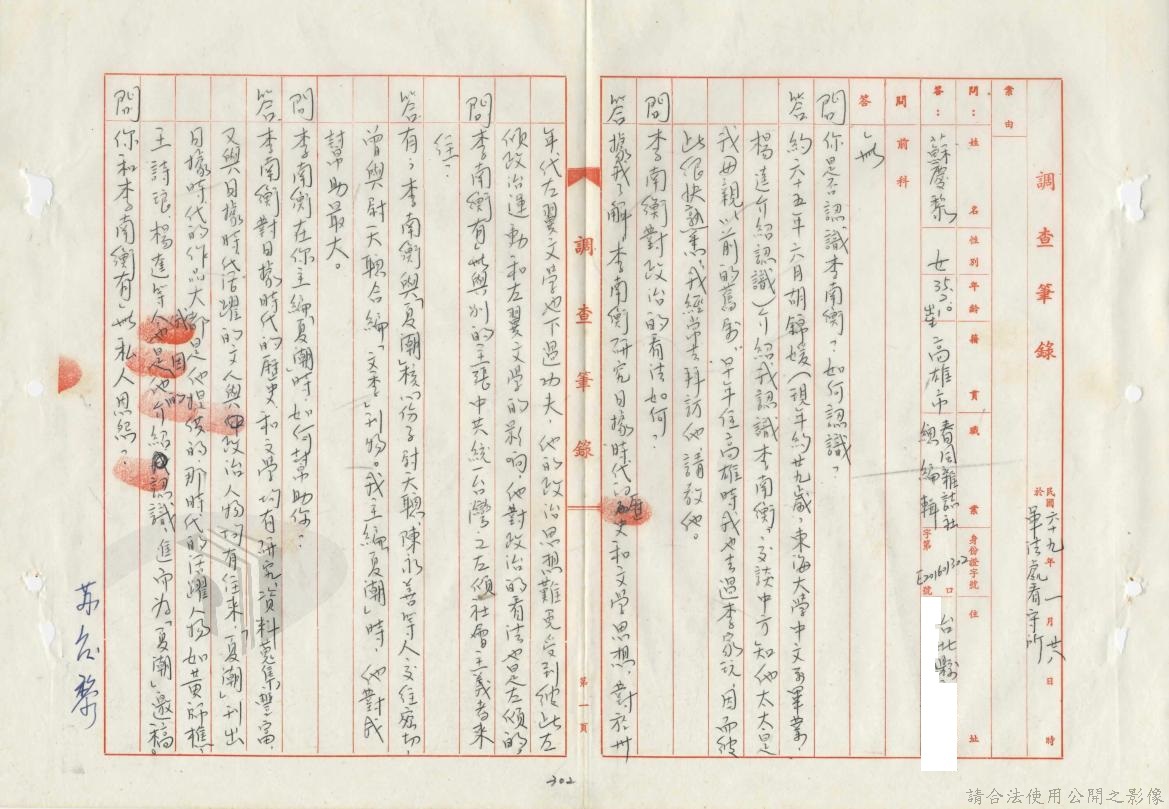 調查筆錄
民國六十九年一月廿八日時
於軍法處看守所
案由
問：姓名 性別 年齡 籍貫 職業 身份證字號 住址
答：蘇慶黎 女 35 高雄市 春風雜誌社總編輯 字第 E20160302 號 台北縣
問 前科
答 無
問你是否認識李南衡？如何認識？
答約六十五年六月胡錦媛（現年約廿九歲，東海大學中文系畢業，
楊逵介紹認識）介紹我認識李南衡，交談中方知他太太是
我母親以前的舊鄰，早年住高雄時我也去過李家玩，因而彼
此很快熟悉，我經常去拜訪他，請教他。
問李南衡對政治的看法如何？
答據我了解李南衡研究日據時代的歷史和文學思想，對於卅
調查筆錄
第一頁
年代左翼文學也下過功夫，他的政治思想難免受到彼此左
傾政治運動和左翼文學的影响，他對政治的看法也是左傾的
問李南衡有無與別的主張中共統一台灣之左傾社會主義者來
往：
答有；李南衡與「夏潮」核心份子尉天聰、陳永善等人交往密切，
曾與尉天聰合編「文季」刊物。我主編「夏潮」時，他對我
幫助最大。
問李南衡在你主編「夏潮」時如何幫助你？
答李南衡對日據時代的歷史和文學均有研究，資料蒐集豐富，
又與日據時代活躍的文人與政治人物均有往來，「夏潮」刊出
日據時代的作品大都是他提供的，那時代的活躍人物如黃師樵、
王詩琅、楊逵等，我也是因他的介紹認識，進而為「夏潮」邀稿。
問你和李南衡有無私人恩怨？
苏慶黎
302
請合法使用公開之影像